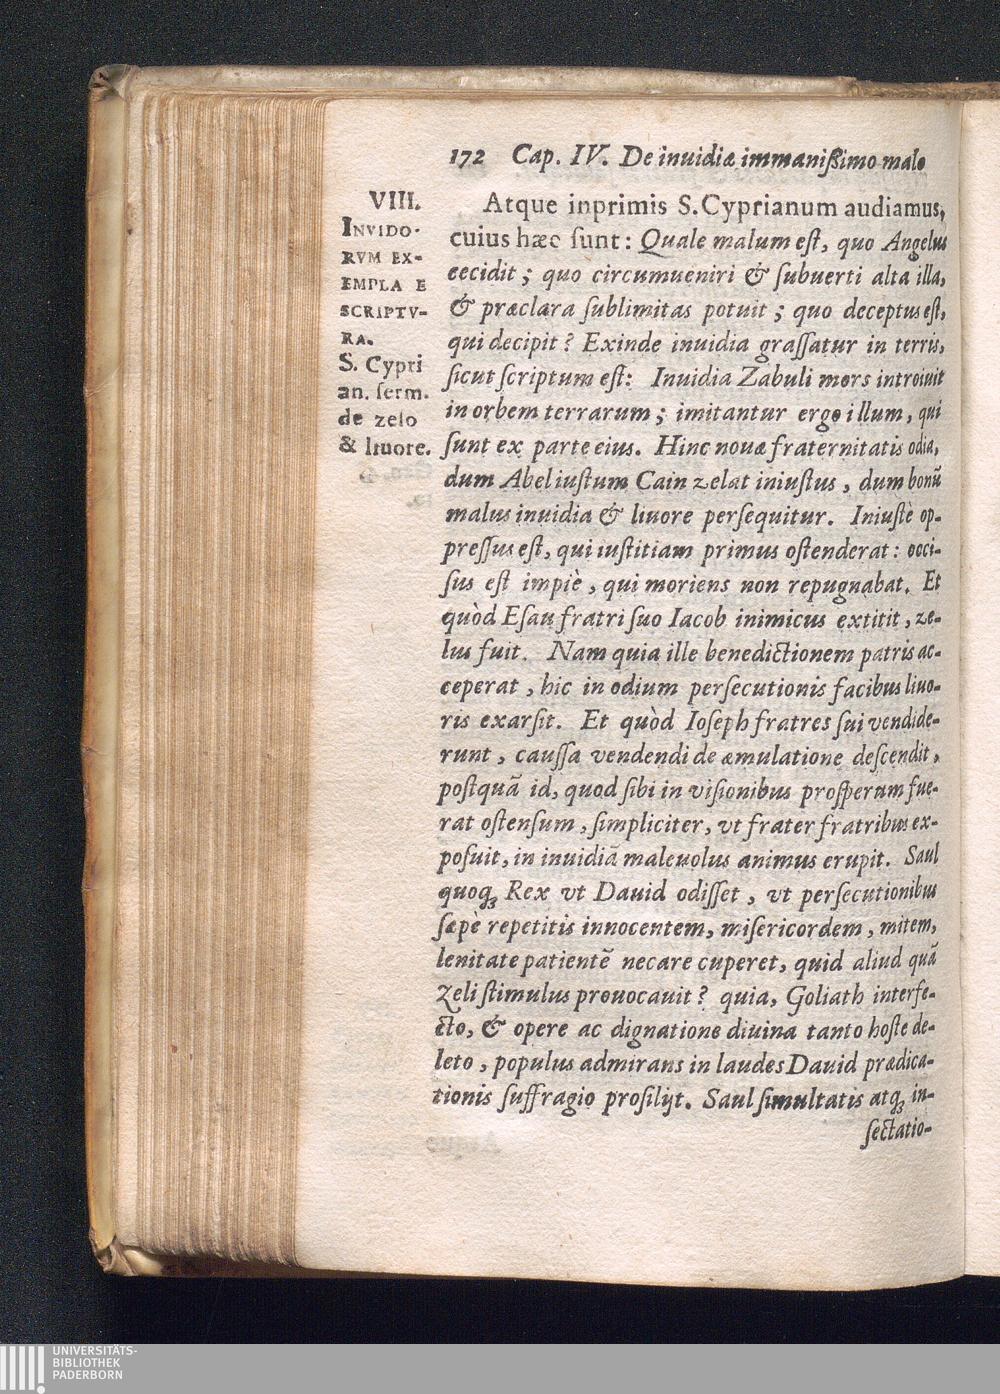 172 Cap. IV. De inuidiæ immanißimo malo
VIII.
INVIDO-
RVM EX-
EMPLA E
SCRIPTV-
RA.
S. Cypri
an. ſerm.
de zelo
& liuore.
Atque inprimis S. Cyprianum audiamus,
cuius hæc ſunt: Quale malum eſt, quo Angelus
cecidit; quo circumueniri & ſubuerti alta illa,
& præclara ſublimitas potuit; quo deceptus eſt,
qui decipit? Exinde inuidia graſſatur in terris,
ſicut ſcriptum eſt: Inuidia Zabuli mors introiuit
in orbem terrarum; imitantur ergo illum, qui
ſunt ex parte eius. Hinc nouæ fraternitatis odia,
dum Abel iuſtum Cain zelat iniuſtus, dum bonũ
malus inuidia & liuore perſequitur. Iniuſtè op-
preſſus eſt, qui iuſtitiam primus oſtenderat: occi-
ſus eſt impiè, qui moriens non repugnabat. Et
quòd Eſau fratri ſuo Iacob inimicus extitit, ze-
lus fuit. Nam quia ille benedictionem patris ac-
ceperat, hic in odium perſecutionis facibus liuo-
ris exarſit. Et quòd Ioſeph fratres ſui vendide-
runt, cauſſa vendendi de æmulatione deſcendit,
poſtquã id, quod ſibi in viſionibus proſperum fue-
rat oſtenſum, ſimpliciter, vt frater fratribus ex-
poſuit, in inuidiã maleuolus animus erupit. Saul
quoq; Rex vt Dauid odiſſet, vt perſecutionibus
ſæpè repetitis innocentem, miſericordem, mitem,
lenitate patientẽ necare cuperet, quid aliud quã
Zeli ſtimulus prouocauit? quia, Goliath interfe-
cto, & opere ac dignatione diuina tanto hoſte de-
leto, populus admirans in laudes Dauid prædica-
tionis ſuffragio proſilijt. Saul ſimultatis atq; in-
ſectatio-
UNIVERSITÄTS-
BIBLIOTHEK
PADERBORN